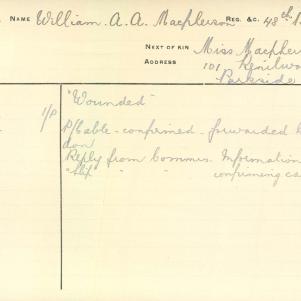 NAME William A. A. Macpherson REG. &C. 48th
NEXT OF KIN Miss Macpher
ADDRESS 101 Kenilwo
Parkside
"Wounded"
1/P P/Cable - confirmed - forwarded
don
Reply from Commis. Information
" " confirming ca